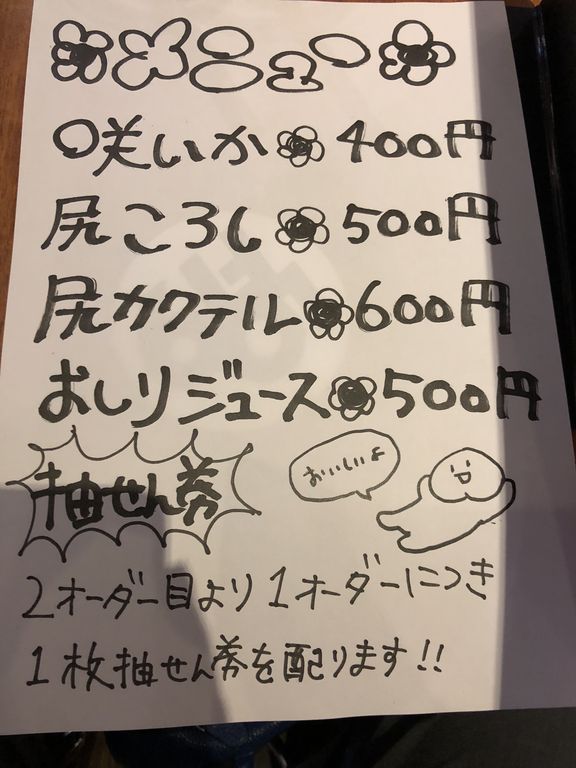 メニュー
咲いか 400円
尻ころし 500円
尻カクテル 600円
おしりジュース 500円
抽せん券
おいしいよ
2オーダー目より1オーダーにつき
1枚抽せん券を配ります!!